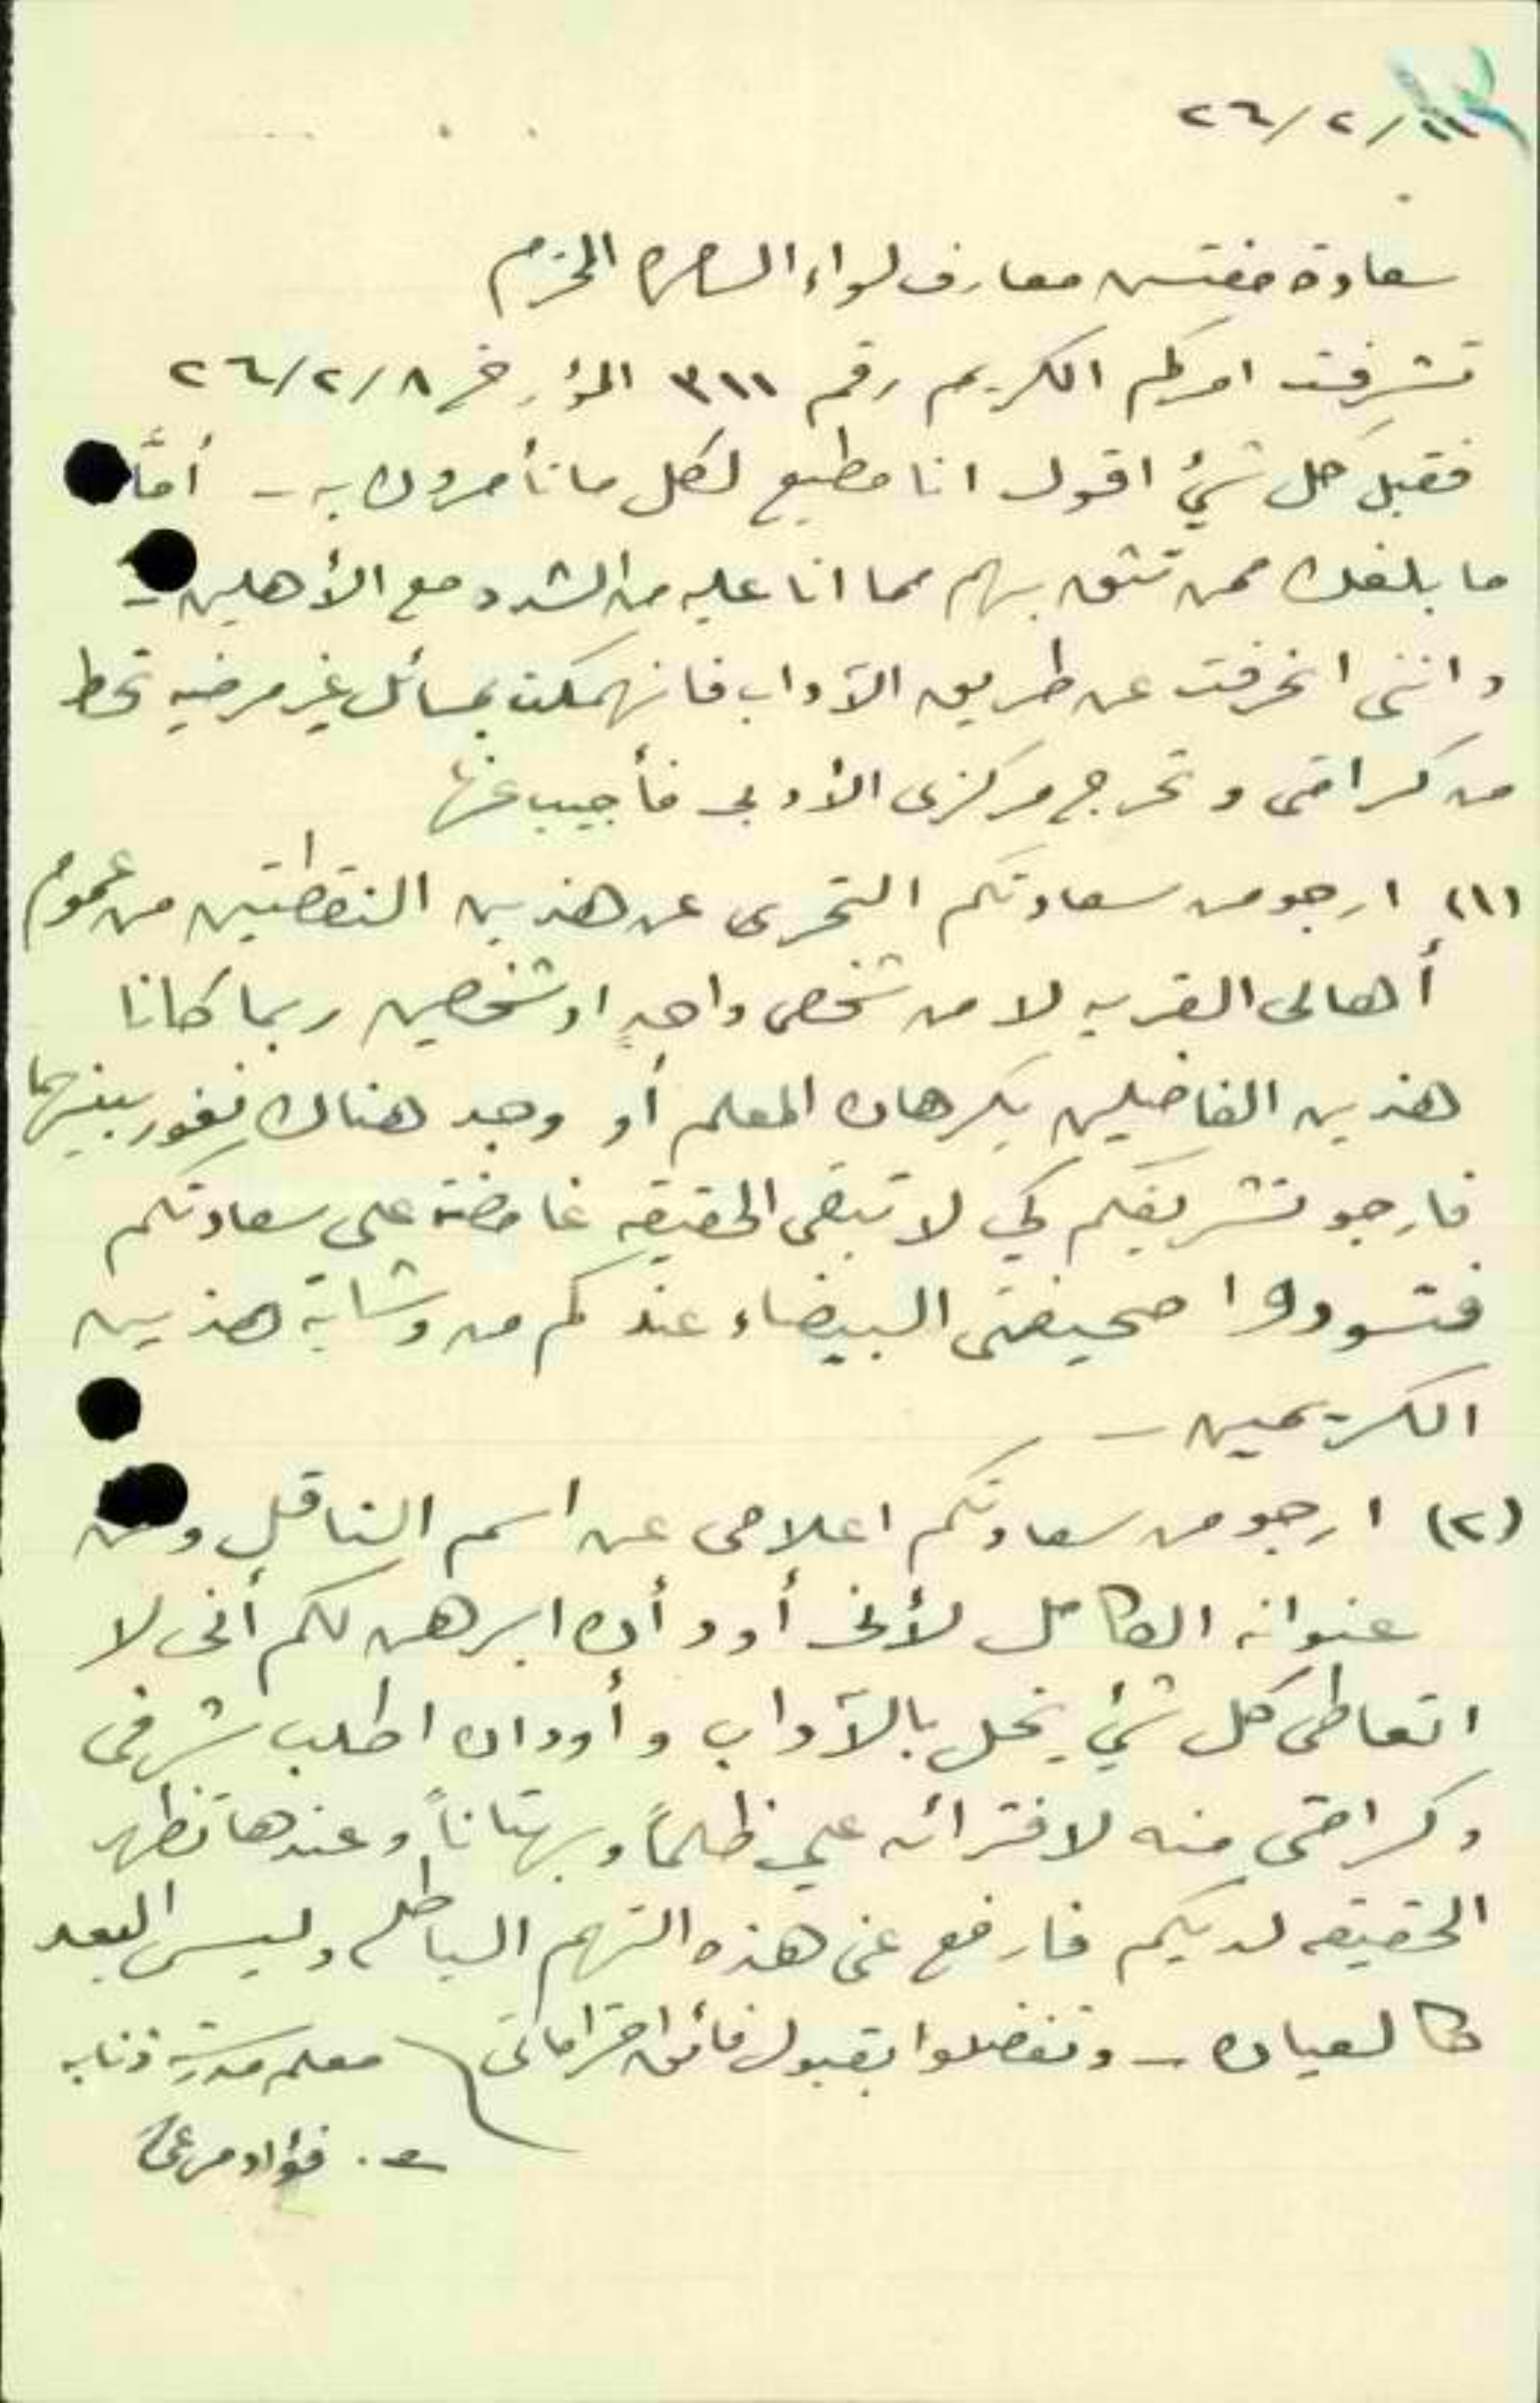 ١١/٢/٢٦
سعادة مفتش معارف لواء السامره المحترم
تشرفت امركم الكريم رقم ٣١١ المؤرخ ٢٦/٢/٨
فقبل كل شئ اقول انا مطيع لكل ما تأمرون به - أمَّا
ما بلغك ممن تثق بهم مما انا عليه من الشدد مع الأهلين -
وانني انحرفت عن طريق الآداب فانهمكت بمسائل غير مرضيه تحط
من كرامتي وتحرج مركزي الأدبي فأجيب عنها
(١) ارجو من سعادتكم التحري عن هذين النقطتين من عموم
أهالي القريه لا من شخص واحدٍ او شخصين ربما كانا
هذين الفاضلين يكرهان المعلم أو وجد هناك نفور بينهما
فارجو تشريفكم كي لا تبقى الحقيقه غامضة على سعادتكم
فتسودوا صحيفتي البيضاء عندكم من وشاية هذين
الكريمين -
(٢) ارجو من سعادتكم اعلامي عن اسم الناقل وعن
عنوانه الكامل لأني أود أن ابرهن لكم أني لا
اتعاطى كل شئ يخل بالآداب وأود ان اطلب شرفي
وكرامتي منه لافترائه علي ظلماً وبهتاناً وعندها تظهر
الحقيقه لديكم فارفع عني هذه التهم الباطله وليس البعد
كالعيان - وتفضلوا بقبول فائق احتراماتي معلم مدرسة ذنابه
فؤاد مرعي